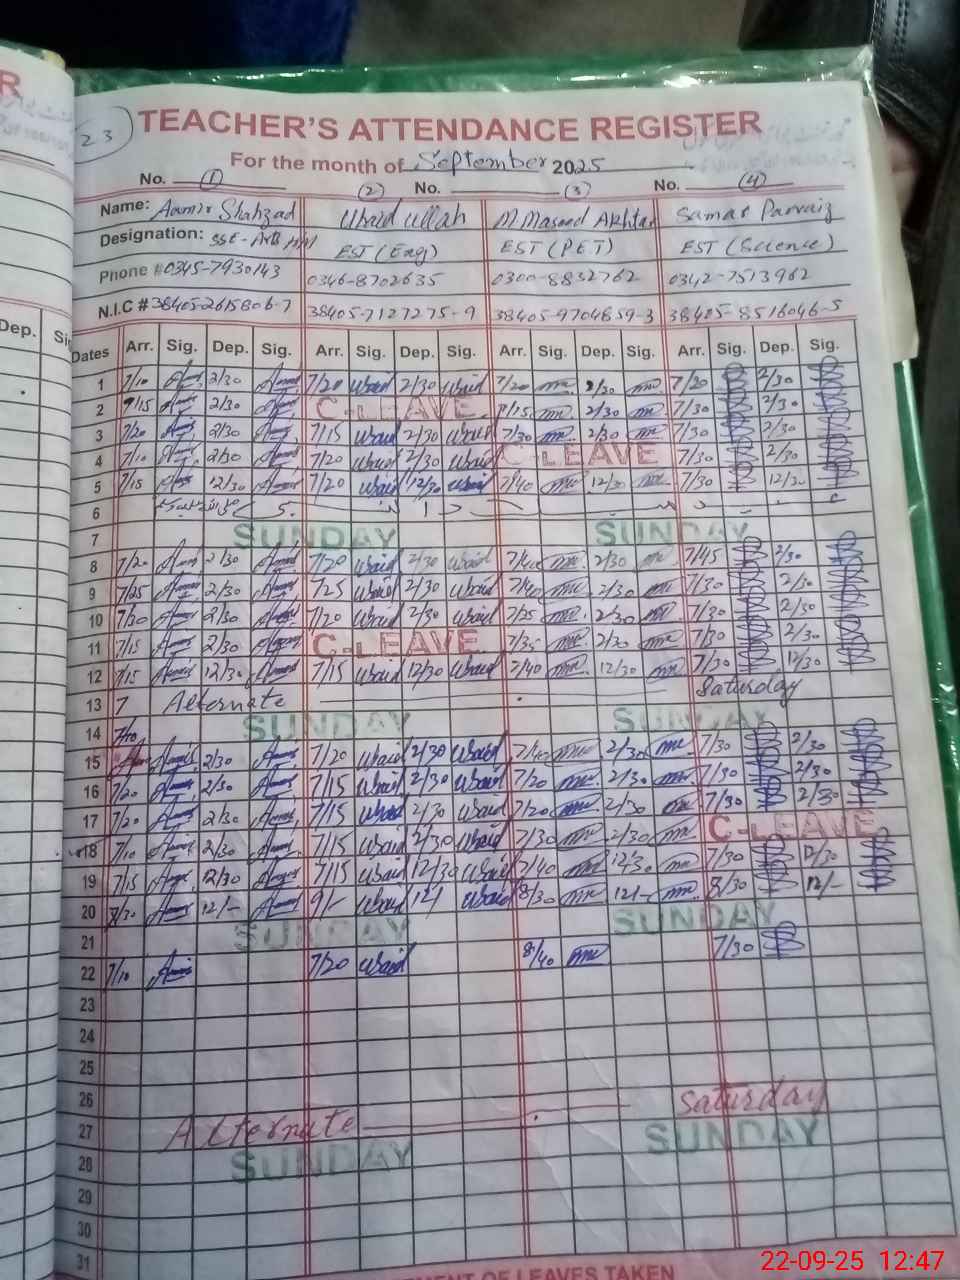 R
23
TEACHER'S ATTENDANCE REGISTER
For the month of September 2025
No. (1) (2) No. (3) No. (4)
Name: Aamir Shahzad Ubaid ullah M Masood Akhtar Samar Parvaiz
Designation: SSE- EST (Eng) EST (P.E.T) EST (Science)
Phone # 0345-7930143 0346-8702635 0300-8832762 0342-7513962
N.I.C # 38405-2615806-7 38405-7127275-9 38405-9704859-3 38405-8516046-5
Dep. Sig
Dates Arr. Sig. Dep. Sig. Arr. Sig. Dep. Sig. Arr. Sig. Dep. Sig. Arr. Sig. Dep. Sig.
1 7/10 2/30 7/20 Ubaid 2/30 Ubaid 7/20 2/30 7/20 2/30
2 7/15 2/30 C-LEAVE 7/15 2/30 7/30 2/30
3 7/20 2/30 7/15 Ubaid 2/30 Ubaid 7/30 2/30 7/30 2/30
4 7/10 2/30 7/20 Ubaid 2/30 Ubaid C-LEAVE 7/30 2/30
5 7/15 12/30 7/20 Ubaid 12/30 Ubaid 7/40 12/30 7/30 12/30
6
7 SUNDAY SUNDAY
8 7/20 2/30 7/20 Ubaid 2/30 Ubaid 7/40 2/30 7/45 2/30
9 7/25 2/30 7/25 Ubaid 2/30 Ubaid 7/40 2/30 7/30 2/30
10 7/20 2/30 7/20 Ubaid 2/30 Ubaid 7/25 2/30 7/30 2/30
11 7/15 2/30 C-LEAVE 7/35 2/30 7/30 2/30
12 7/15 12/30 7/15 Ubaid 12/30 Ubaid 7/40 12/30 7/30 12/30
13 Alternate Saturday
14 SUNDAY SUNDAY
15 7/10 2/30 7/20 Ubaid 2/30 Ubaid 7/40 2/30 7/30 2/30
16 7/20 2/30 7/15 Ubaid 2/30 Ubaid 7/20 2/30 7/30 2/30
17 7/20 2/30 7/15 Ubaid 2/30 Ubaid 7/20 2/30 7/30 2/30
18 7/10 2/30 7/15 Ubaid 2/30 Ubaid 7/30 2/30 C-LEAVE
19 7/15 12/30 7/15 Ubaid 12/30 Ubaid 7/40 12/30 7/30 12/30
20 8/30 12/- 9/- Ubaid 12/ Ubaid 8/30 12/- 8/30 12/-
21 SUNDAY SUNDAY
22 7/10 7/20 Ubaid 8/40 7/30
23
24
25
26
27 Alternate Saturday
28 SUNDAY SUNDAY
29
30
31
OF LEAVES TAKEN
22-09-25 12:47